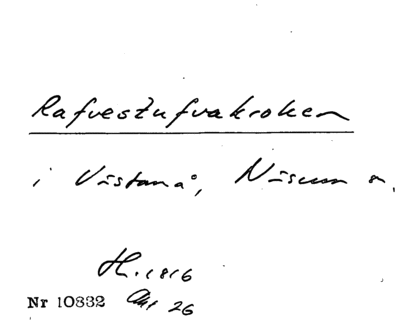 Rafvestufvakroken
i Västanå, Näsum s.
H. 1816
Nr 10832 Akt 26